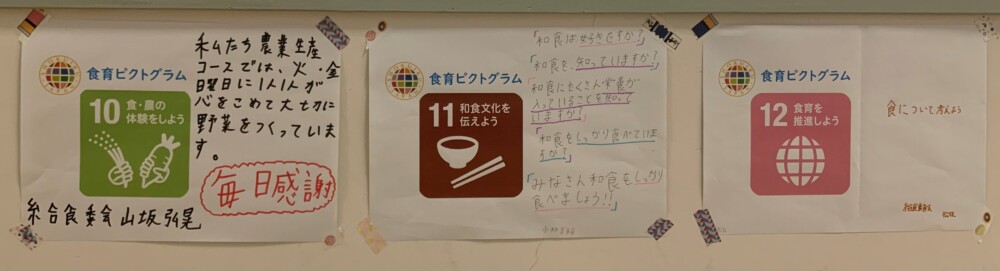 食育ピクトグラム
10 食・農の
体験をしよう
私たち農業生産
コースでは、火・金
曜日に1人1人が
心をこめて大切に
野菜をつくっていま
す。
毎日感謝
給食委会 山坂弘晃
食育ピクトグラム
11 和食文化を
伝えよう
「和食は好きですか?」
「和食を、知っていますか?」
「和食にたくさん栄養が
入っていることを知って
いますか?」
「和食をしっかり食べていま
すか?」
「みなさん和食をしっかり
食べましょう!!」
食育ピクトグラム
12 食育を
推進しよう
食について考えよう